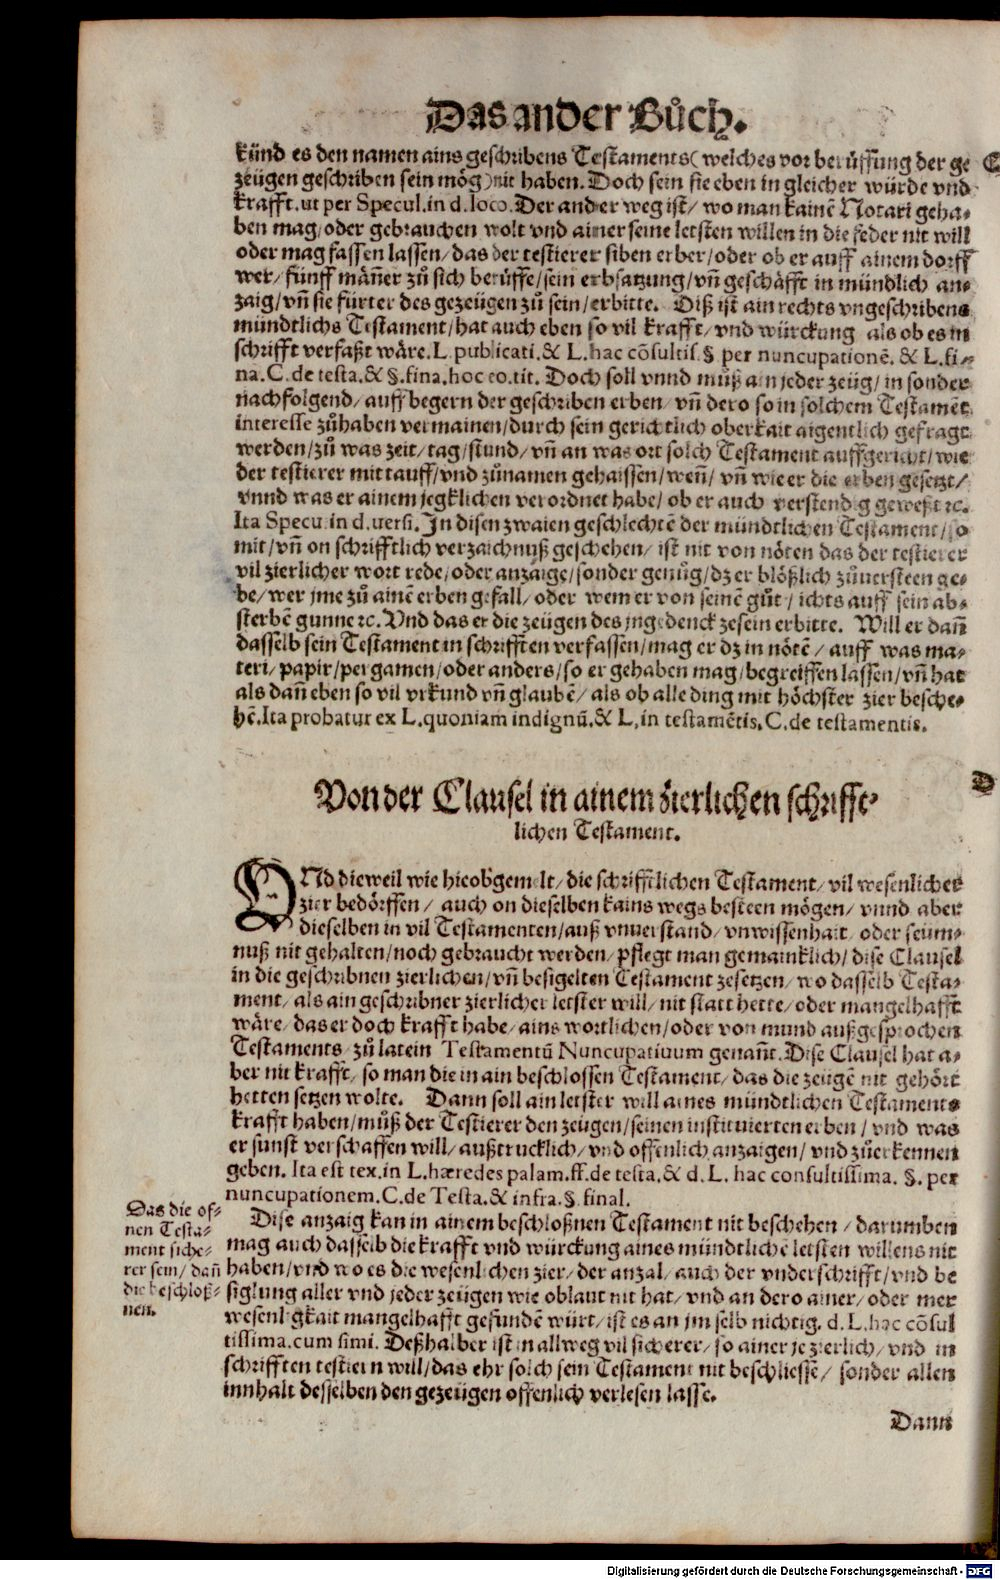 Das ander Bůch.
künd es den namen ains geschribens Testaments (welches vor berüffung der ge C
zeügen geschriben sein mög) nit haben. Doch sein sie eben in gleicher würde vnd
krafft. ut per Specul. in d. loco. Der ander weg ist / wo man kainē Notari geha-
ben mag / oder gebrauchen wolt vnd ainer seine letsten willen in die feder nit will
oder mag fassen lassen / das der testierer siben erber / oder ob er auff ainem dorff
wer / fünff mäñer zů sich berüffe / sein erbsatzung / vñ geschäfft in mündlich an-
zaig / vñ sie fürter des gezeügen zů sein / erbitte. Diß ist ain rechts vngeschribens
mündtlichs Testament / hat auch eben so vil krafft / vnd würckung als ob es in
schrifft verfaßt wäre. L. publicati. & L. hac cōsultis. §. per nuncupationē. & L. fi-
na. C. de testa. & §. fina. hoc eo. tit. Doch soll vnnd můß ain jeder zeüg / in sonder
nachfolgend / auff begern der geschriben erben / vñ dero so in solchem Testamēt
interesse zůhaben vermainen / durch sein gerichtlich oberkait aigentlich gefragt
werden / zů was zeit / tag / stund / vñ an was ort solch Testament auffgericht / wie
der testierer mit tauff / vnd zůnamen gehaissen / weñ / vñ wie er die erben gesetzt /
vnnd was er ainem jegklichen verordnet habe / ob er auch verstendig geweßt ꝛc.
Ita Specu. in d. uersi. In disen zwaien geschlechtē der mündtlichen Testament / so
mit / vñ on schrifftlich verzaichnuß geschehen / ist nit von nöten das der testierer
vil zierlicher wort rede / oder anzäige / sonder genůg / dz er blößlich zůuersteen ge-
be / wer jme zů ainē erben gefall / oder wem er von seinē gůt / ichts auff sein ab-
sterbē gunne ꝛc. Vnd das er die zeügen des jngedenck zesein erbitte. Will er dañ
dasselb sein Testament in schrifften verfassen / mag er dz in nötē / auff was ma-
teri / papir / pergamen / oder anders / so er gehaben mag / begreiffen lassen / vñ hat
als dañ eben so vil vrkund vñ glaubē / als ob alle ding mit höchster zier besche-
hē. Ita probatur ex L. quoniam indignū. & L. in testamētis. C. de testamentis.
D
Von der Clausel in ainem zierlichen schrifft-
lichen Testament.
VNd dieweil wie hieobgemelt / die schrifftlichen Testament / vil wesenlicher
zier bedörffen / auch on dieselben kains wegs besteen mögen / vnnd aber
dieselben in vil Testamenten / auß vnuerstand / vnwissenhait / oder seüm-
nuß nit gehalten / noch gebraucht werden / pflegt man gemainklich / dise Clausel
in die geschribnen zierlichen / vñ besigelten Testament zesetzen / wo dasselb Testa-
ment / als ain geschribner zierlicher letster will / nit statt hette / oder mangelhafft
wäre / das er doch krafft habe / ains wortlichen / oder von mund außgesprochen
Testaments / zů latein Testamentū Nuncupatiuum genañt. Dise Clausel hat a-
ber nit krafft / so man die in ain beschlossen Testament / das die zeügē nit gehört
hetten setzen wolte. Dann soll ain letster will aines mündtlichen Testaments
krafft haben / můß der Testierer den zeugen / seinen instituierten erben / vnd was
er sunst verschaffen will / außtrucklich / vnd offenlich anzaigen / vnd zůerkennen
geben. Ita est tex. in L. hæredes palam. ff. de testa. & d. L. hac consultissima. §. per
nuncupationem. C. de Testa. & infra. §. final.
Das die of-
nen Testa-
ment siche-
rer sein / dañ
die beschloß-
nen.
Dise anzaig kan in ainem beschloßnen Testament nit beschehen / darumben
mag auch dasselb die krafft vnd würckung aines mündtlichē letsten willens nit
haben / vnd wo es die wesenlichen zier / der anzal / auch der vnderschrifft / vnd be
siglung aller vnd jeder zeügen wie oblaut nit hat / vnd an dero ainer / oder mer
wesenligkait mangelhafft gefundē würt / ist es an jm selb nichtig. d. L. hac cōsul
tissima. cum simi. Deßhalber ist in allweg vil sicherer / so ainer je zierlich / vnd in
schrifften testiern will / das ehr solch sein Testament nit beschliessē / sonder allen
innhalt desselben den gezeügen offenlich verlesen lasse.
Dann
Digitalisierung gefördert durch die Deutsche Forschungsgemeinschaft - DFG